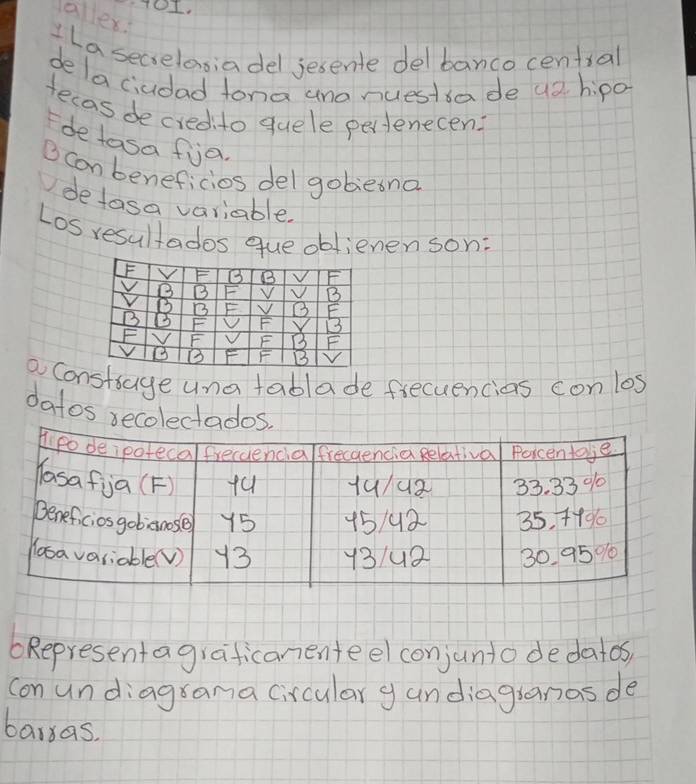 Taller: 401.
1 La secretaria del jerente del banco central
de la ciudad toma una muestra de 42 hipo
tecas de credito que le pertenecen:
F de tasa fija.
B con beneficios del gobierno
V de tasa variable.
Los resultados que obtienen son:
F V F B B V F
V B B F V V B
V B B F V B F
B B F V F V B
F V F V F B F
V B B F F B V
a Constraye una tabla de frecuencias con los
datos recolectados.
Tipo de ipoteca frecuencia frecuencia Relativa Porcentaje
Tasa fija (F) 14 14/42 33.33%
Beneficios gobianos(B) 15 15/42 35.71%
Tasa variable(V) 13 13/42 30.95%
b Representa graificamente el conjunto de datos,
con un diagrama circular y un diagramas de
barras.